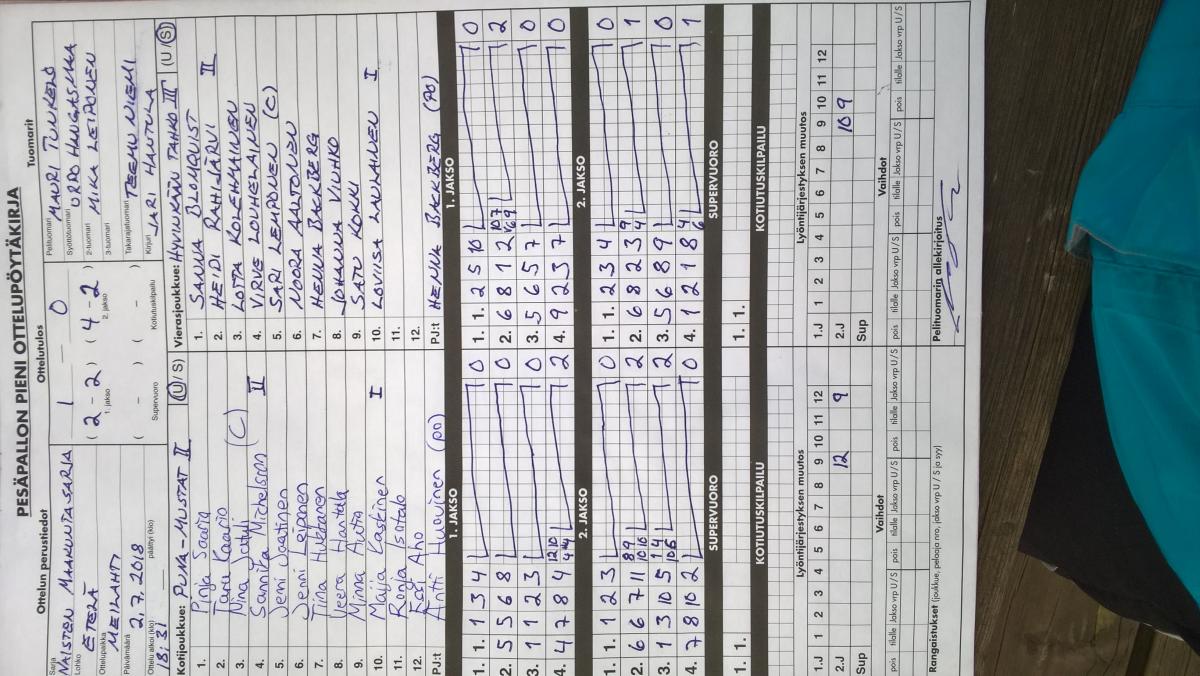 PESÄPALLON PIENI OTTELUPÖYTÄKIRJA
Ottelun perustiedot
Sarja
NAISTEN MAAKUNTASARJA
Lohko
ETELÄ
Ottelupaikka
MEILAHTI
Päivämäärä
2.7.2018
Ottelu alkoi (klo) päättyi (klo)
18:31
Ottelutulos
1 — 0
( 2 - 2 ) ( 4 - 2 )
1. jakso 2. jakso
( - ) ( - )
Supervuoro Kotiutuskilpailu
Tuomarit
Pelituomari
MAURI TUNKELO
Syöttötuomari
ORPO HAUGASMAA
2-tuomari
MIKA LEIPONEN
3-tuomari
Takarajatuomari
TEEMU NIEMI
Kirjuri
JARI HANTULA
Kotijoukkue: PUNA-MUSTAT II (U / S)
1. Pinja Saaria
2. Taru Kaario
3. Nina
4. Sannika Michelsson (C) II
5. Jenni Jaatinen
6. Jenni Leiponen
7. Tiina Hukkanen
8. Veera Hantula
9. Minna Autio
10. Maija Laskinen I
11. Ronja Isotalo
12. Essi Aho
PJ:t Antti Huovinen (PO)
Vierasjoukkue: HYVINKÄÄN TAHKO III (U / S)
1. SANNA BLOMQUIST
2. HEIDI RAHIJÄRVI II
3. LOTTA KOLEHMAINEN
4. VIRVE LOUHELAINEN
5. SARI LEMPONEN (C)
6. NOORA AALTONEN
7. HENNA BACKBERG
8. JOHANNA VIUHKO
9. SATU KOKKI
10. LOVIISA LAULAINEN I
11.
12.
PJ:t HENNA BACKBERG (PO)
1. JAKSO
1. 1. 1 3 4 0
2. 5 5 6 8 0
3. 1 1 2 3 0
4. 4 7 8 4 2
1. JAKSO
1. 1. 2 5 10 0
2. 6 8 1 2 2
3. 5 6 5 7 0
4. 9 2 3 7 0
2. JAKSO
1. 1. 1 2 3 0
2. 6 6 7 11 2
3. 1 3 10 5 2
4. 7 8 10 2 0
2. JAKSO
1. 1. 2 3 4 0
2. 6 8 2 3 1
3. 5 6 8 9 0
4. 1 2 1 8 1
SUPERVUORO
1. 1.
SUPERVUORO
1. 1.
KOTIUTUSKILPAILU
KOTIUTUSKILPAILU
Lyöntijärjestyksen muutos
1 2 3 4 5 6 7 8 9 10 11 12
1.J
2.J 12 9
Sup
Lyöntijärjestyksen muutos
1 2 3 4 5 6 7 8 9 10 11 12
1.J
2.J 10 9
Sup
Vaihdot
pois tilalle Jakso vrp U/S pois tilalle Jakso vrp U/S pois tilalle Jakso vrp U/S
Vaihdot
pois tilalle Jakso vrp U/S pois tilalle Jakso vrp U/S pois tilalle Jakso vrp U/S
Rangaistukset (joukkue, pelaaja nro, jakso vrp U / S ja syy)
Pelituomarin allekirjoitus